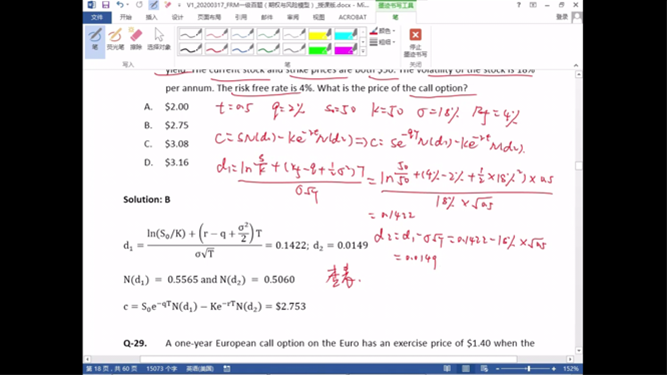 V1_20200317_FRM一级百题(期权与风险模型)_授课版.docx - Mi...
墨迹书写工具
文件
开始
插入
设计
页面布局
引用
邮件
审阅
视图
ACROBAT
笔
登录
笔
荧光笔
橡皮擦
选择对象
颜色
粗细
停止墨迹书写
写入
笔
yield. The current stock and strike prices are both $50. The volatility of the stock is 18%
per annum. The risk free rate is 4%. What is the price of the call option?
A. $2.00
t=0.5 q=2% S0=50 K=50 σ=18% Rf=4%
B. $2.75
C. $3.08
C=SN(d1)-Ke^-rt N(d2) ⇒ C=Se^-qT N(d1)-Ke^-rt N(d2).
D. $3.16
d1=ln S/K+(rf-q+½σ²)T / σ√T = ln 50/50+(4%-2%+½×18%²)×0.5 / 18%×√0.5
=0.1422
Solution: B
d2=d1-σ√T=0.1422-18%×√0.5
=0.0149
d₁ = ln(S₀/K) + (r − q + σ²/2)T / σ√T = 0.1422; d₂ = 0.0149
查表.
N(d₁) = 0.5565 and N(d₂) = 0.5060
c = S₀e^−qT N(d₁) − Ke^−rT N(d₂) = $2.753
Q-29. A one-year European call option on the Euro has an exercise price of $1.40 when the
第 18 页，共 60 页 15073 个字 英语(美国)
152%